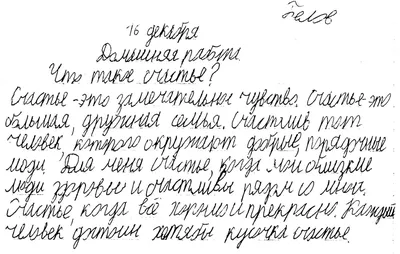 Белов
16 декабря
Домашняя работа.
Что такое счастье?
Счастье - это замечательное чувство. Счастье - это
большая, дружная семья. Счастлив тот
человек которого окружают добрые, порядочные
люди. Для меня счастье, когда мои близкие
люди здоровы и счастливы рядом со мной.
Счастье, когда всё хорошо и прекрасно. Каждый
человек достоин хотябы кусочка счастье.